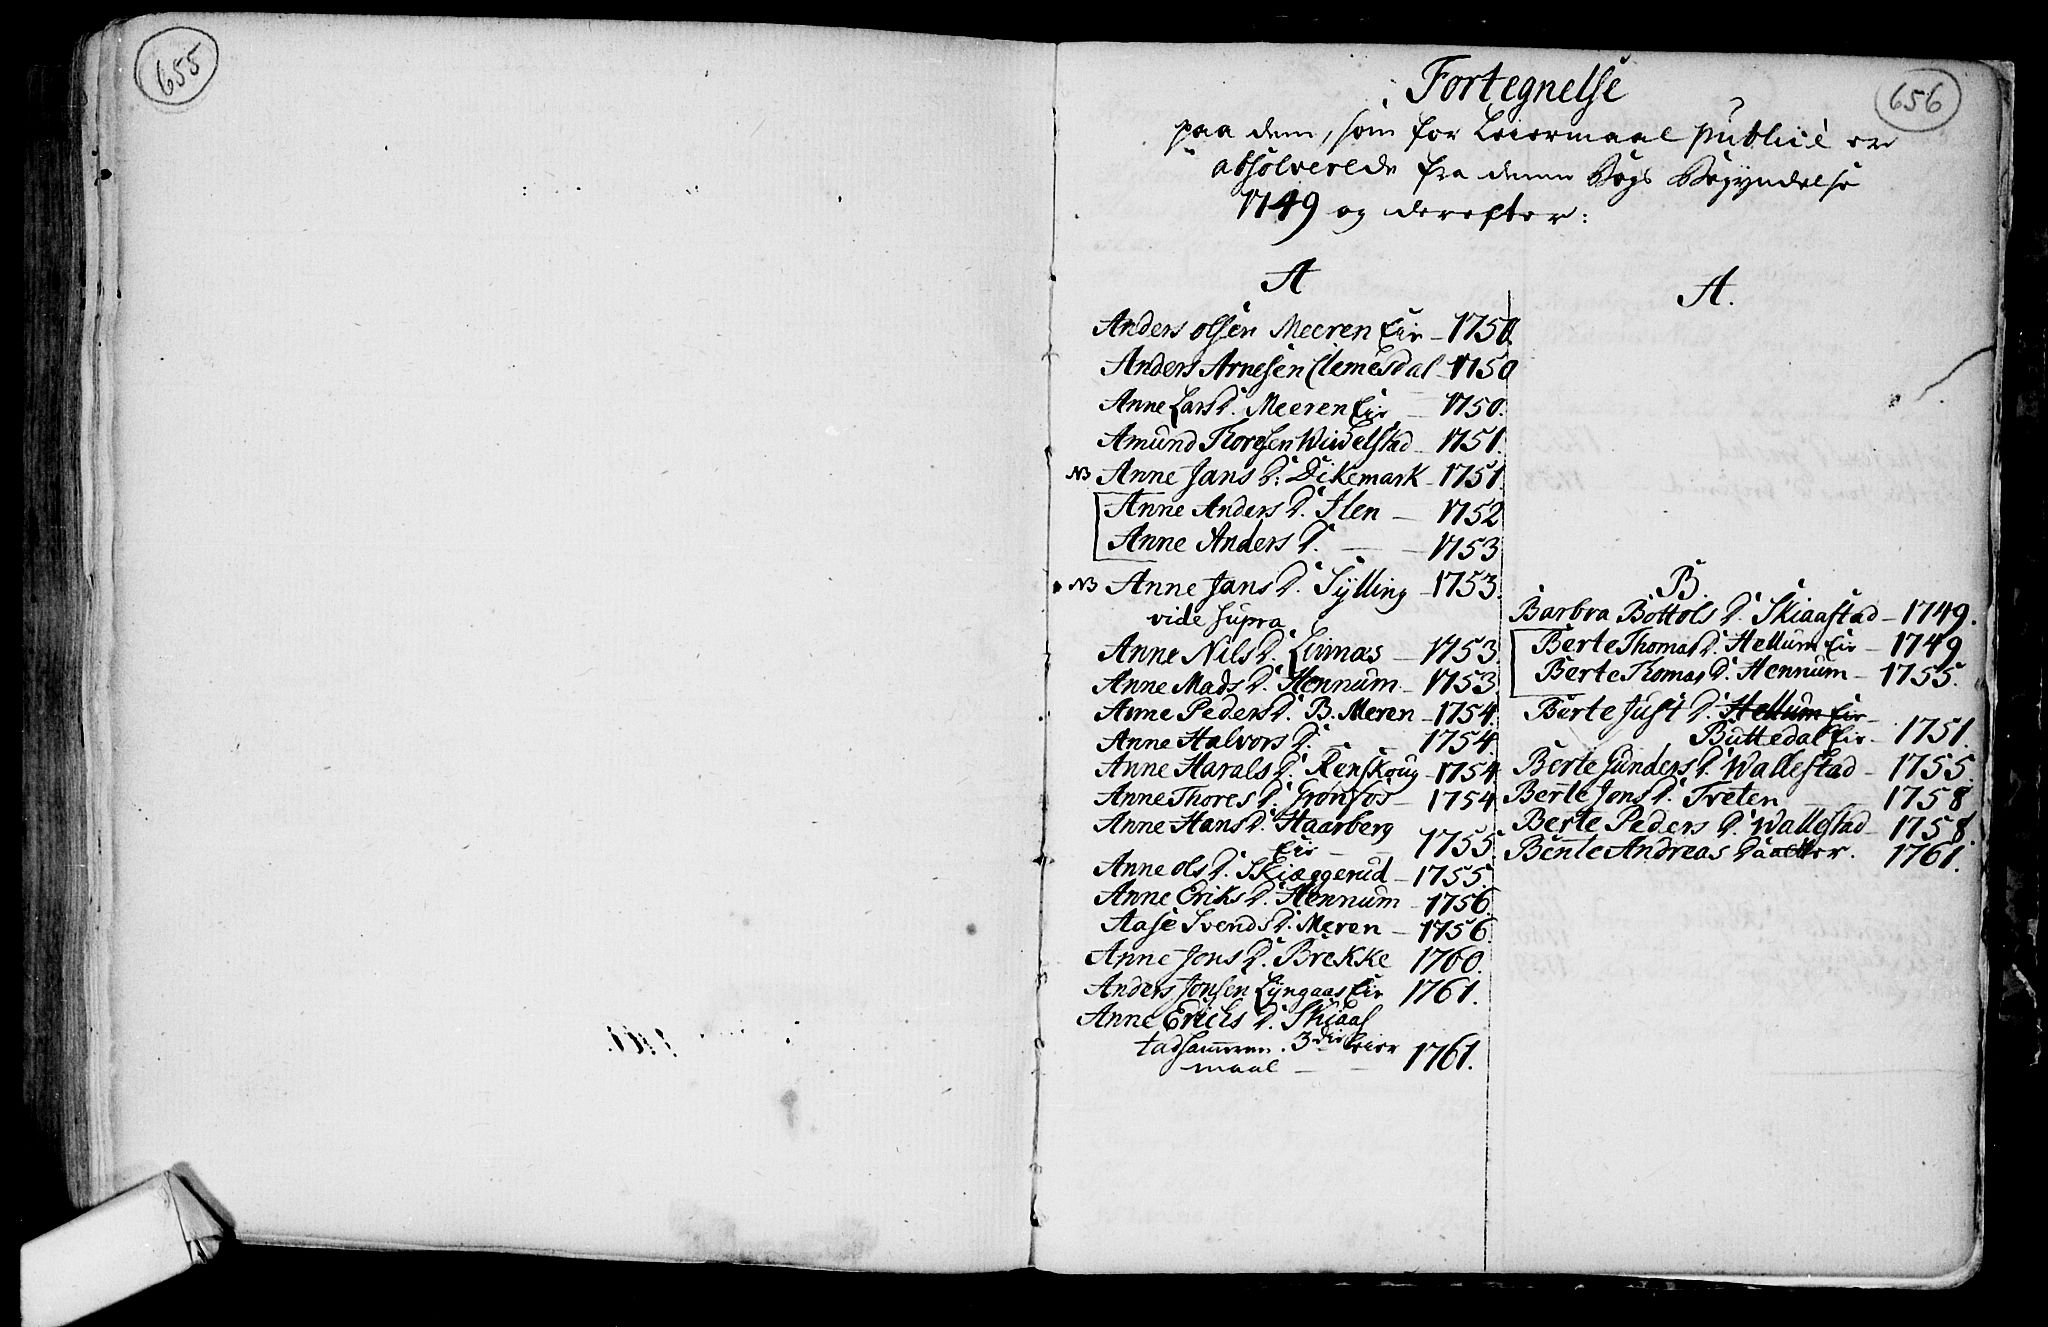 655
656
Fortegnelse
paa dem, som for Leiermaal publicè ere
absolverede fra denne Bogs Begyndelse
1749 og derefter:
A
Anders olsen Meeren Eie – 1750.
Anders Arnesen Clemesdal – 1750
Anne Lars D. Meeren Eie – 1750.
Amund Thoresen Wivelstad – 1751.
NB Anne Jans D: Dikemark – 1751.
Anne Anders D. Ilen – 1752
Anne Anders D. – – 1753
NB Anne Jans D. Sÿlling – 1753.
vide supra
Anne Nils D. Linnas – 1753.
Anne Mads D. Hennum – 1753.
Anne Peders D. B. Meren – 1754.
Anne Halvors D. – – 1754.
Anne Harals D. Renskoug – 1754.
Anne Thores D. Gronfos – 1754
Anne Hans D. Haarberg
Eie – – 1755.
Anne ols D. Skiæggerud – 1755.
Anne Eriks D. Hennum – 1756.
Aase Svends D. Meren – 1756.
Anne Jons D. Brekke 1760.
Anders Jonsen Lyngaas Eie 1761.
Anne Erichs D. Skiaas
tadsammen. 3die Leier
maal – – 1761.
A.
B.
Barbra Bottols D. Skiaastad – 1749.
Berte Thomas D. Hellum Eie – 1749
Berte Thomas D. Hennum – 1755.
Berte Just D. Hellum Eie –
Buttedal Eie – 1751.
Berte Gunders D. Wallestad – 1755.
Berte Jons D. Tveten 1758
Berte Peders D. Wallestad – 1758.
Bente Andreas Daatter. 1761.